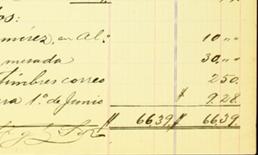 os:
mirez, en Al: 10,00
merada 30,00
Timbres correo 250
ra 1º de Junio $ 9.28
$ 6639, $ 6639